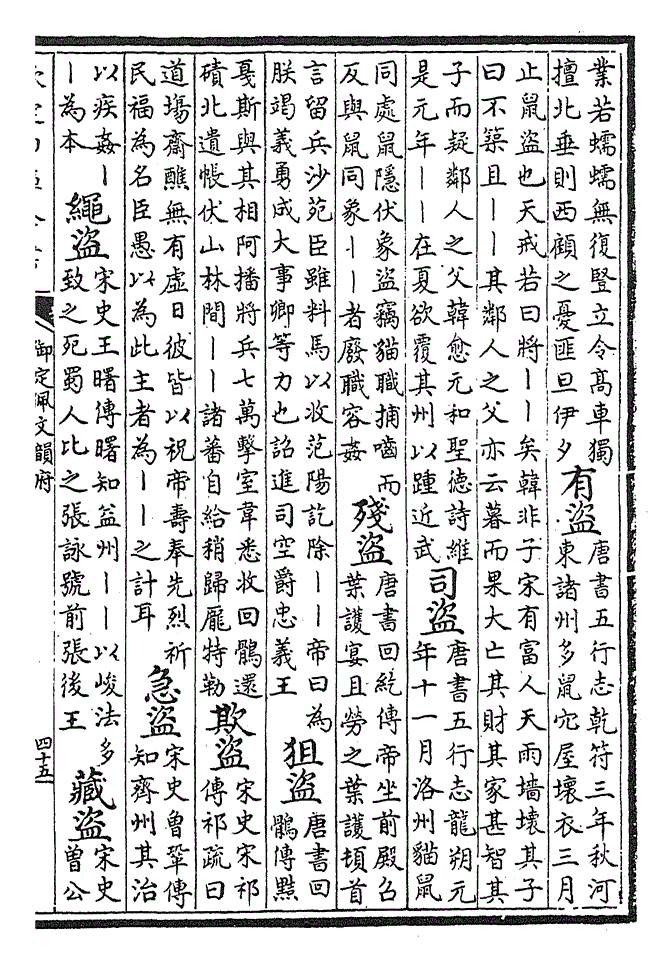 業若蠕蠕無復豎立令高車獨
擅北垂則西顧之憂匪旦伊夕
有盜
唐書五行志乾符三年秋河
東諸州多鼠穴屋壞衣三月
止鼠盜也天戒若曰將丨丨矣韓非子宋有富人天雨墻壞其子
曰不築且丨丨其鄰人之父亦云暮而果大亡其財其家甚智其
子而疑鄰人之父韓愈元和聖德詩維
是元年丨丨在夏欲覆其州以踵近武
司盜
唐書五行志龍朔元
年十一月洛州貓鼠
同處鼠隱伏象盜竊貓職捕嚙而
反與鼠同象丨丨者廢職容姦
殘盜
唐書回紇傳帝坐前殿召
葉護宴且勞之葉護頓首
言留兵沙苑臣雖料馬以收范陽訖除丨丨帝曰為
朕竭義勇成大事卿等力也詔進司空爵忠義王
狙盜
唐書回
鶻傳黠
戛斯與其相阿播將兵七萬擊室韋悉收回鶻還
磧北遺帳伏山林間丨丨諸蕃自給稍歸厖特勒
欺盜
宋史宋祁
傳祁疏曰
道場齋醮無有虛日彼皆以祝帝壽奉先烈祈
民福為名臣愚以為此主者為丨丨之計耳
急盜
宋史曾鞏傳
知齊州其治
以疾姦丨
丨為本
繩盜
宋史王曙傳曙知益州丨丨以峻法多
致之死蜀人比之張詠號前張後王
藏盜
宋史
曾公
御定佩文韻府
四十五